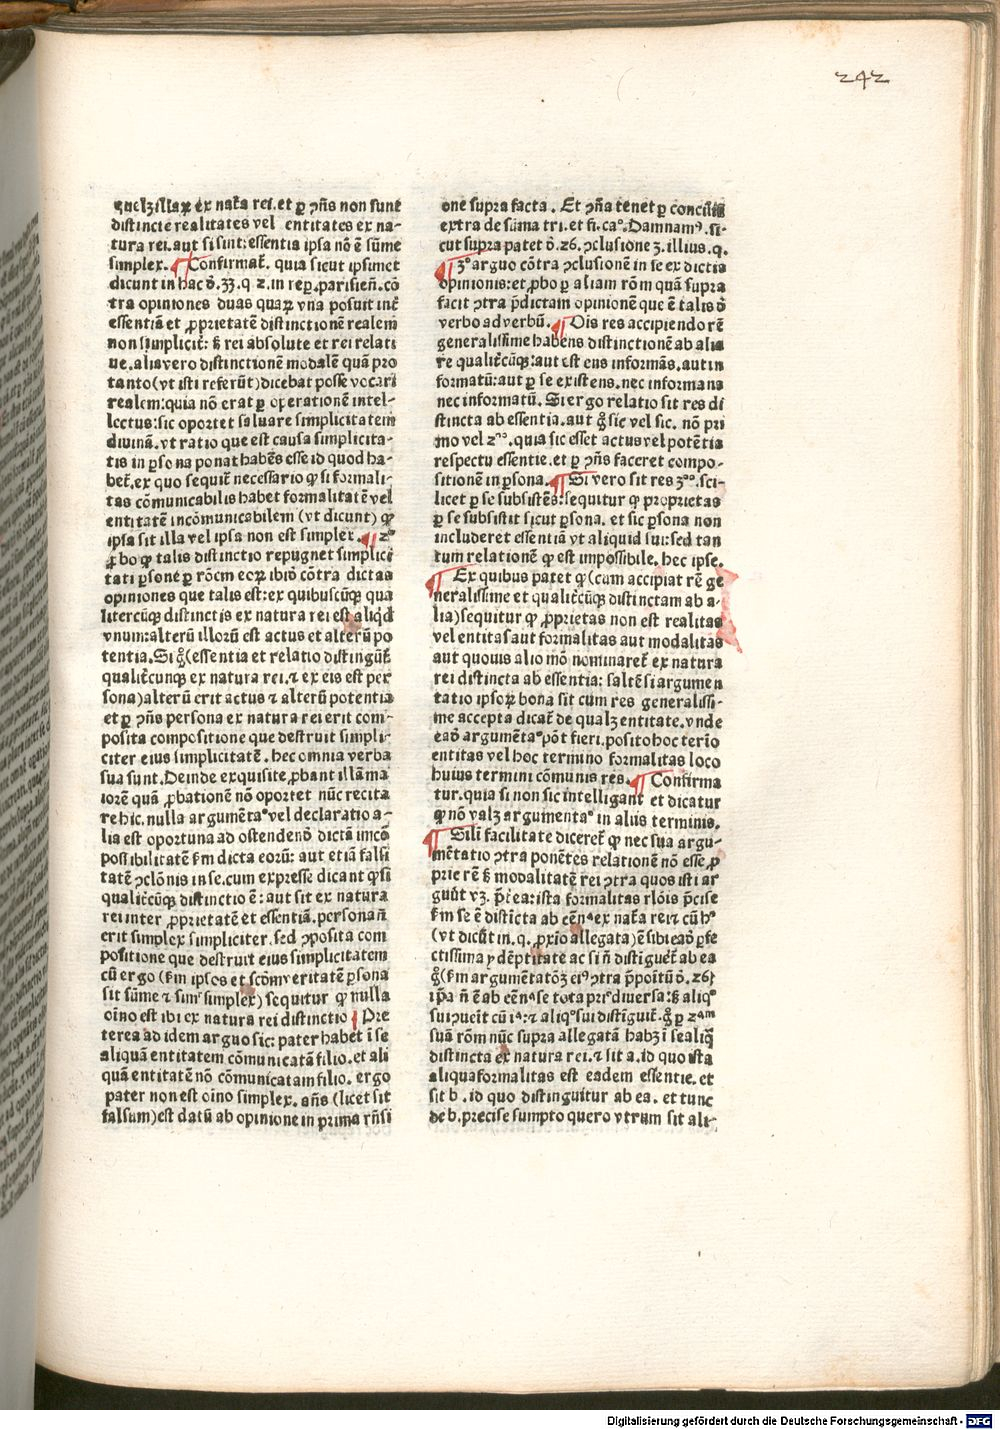 242
quelꝫ illaꝝ ex nat̃a rei. et ꝑ ꝯñs non sunt
distincte realitates vel entitates ex na-
tura rei. aut si sint: essentia ipsa nō ē sūme
simplex. ¶ Confirmat̃. quia sicut ipsimet
dicunt in hac d̄. 33. q. 2. in rep̲. parisieñ. cō
tra opiniones duas quaꝝ vna posuit int̃
essentiā et ꝓprietatē distinctionē realem
non simplicit̃: sꝫ rei absolute et rei relati
ue. alia vero distinctionē modalē quā pro
tanto (vt isti referūt) dicebat posse vocari
realem: quia nō erat ꝑ operationē intel-
lectus: sic oportet saluare simplicitatem
diuinā. vt ratio que est causa simplicita-
tis in ꝑsona ponat habēs esse id quod ha-
bet̃. ex quo sequit̃ necessario ꝙ si formali-
tas cōmunicabilis habet formalitatē vel
entitatē incōmunicabilem (vt dicunt) ꝙ
ipsa sit illa vel ipsa non est simplex. ¶ 2º
ꝓbo ꝙ talis distinctio repugnet simplici
tati ꝑsone ꝑ rōem eoꝝ ibiō cōtra dictas
opiniones que talis est: ex quibuscūqꝫ qua
litercūqꝫ distinctis ex natura rei est aliqd̃
vnum: alterū illorū est actus et alterū po
tentia. Si g̊ (essentia et relatio distingūt̃
qualit̃cunqꝫ ex natura rei. ⁊ ex eis est per
sona) alterū erit actus ⁊ alterū potentia
et ꝑ ꝯñs persona ex natura rei erit com-
posita compositione que destruit simpli-
citer eius simplicitatē. hec omnia verba
sua sunt. Deinde exquisite ꝓbant illā ma
iorē quā ꝓbationē nō oportet nūc recita
re hic. nulla argumētaº vel declaratio a-
lia est oportuna ad ostendendō dictā imcō
possibilitatē ẜm dicta eorū: aut etiā falsi
tatē ꝯclōnis in se. cum expresse dicant ꝙ si
qualit̃cūqꝫ distinctio ē: aut sit ex natura
rei inter ꝓprietatē et essentiā. persona ñ
erit simplex simpliciter. sed ꝯposita com
positione que destruit eius simplicitatem
cū ergo (ẜm ipsos et scōm veritatē ꝑsona
sit sūme ⁊ simꝉ simplex) sequitur ꝙ nulla
oīno est ibi ex natura rei distinctio ¶ Pre
terea ad idem arguo sic: pater habet ī se
aliquā entitatem cōmunicatā filio. et ali
quā entitatē nō cōmunicatam filio. ergo
pater non est oīno simplex. añs (licet sit
falsum) est datū ab opinione in prima rñsi
onē supra facta. Et ꝯña tenet ꝑ conciliū
extra de sūma tri. et fi. caº. Damnamꝰ. si-
cut supra patet d̄. 26. ꝯclusione 3. illius. q.
¶ 3º arguo cōtra ꝯclusionē in se ex dictis
opinionis: et ꝓbo ꝑ aliam rōm quā supra
facit ꝯtra p̃dictam opinionē que ē talis ð
verbo ad verbū. ¶ Oīs res accipiendo rē
generalissime habens distinctionē ab alia
re qualit̃cūqꝫ: aut est ens informās. aut in
formatū: aut ꝑ se existens. nec informans
nec informatū. Si ergo relatio sit res di
stincta ab essentia. aut g̊ sic vel sic. nō pri
mo vel 2º. quia sic esset actus vel potētia
respectu essentie. et ꝑ ꝯñs faceret compo-
sitionē in ꝑsona. ¶ Si vero sit res 3º. sci-
licet ꝑ se subsistēs: sequitur ꝙ proprietas
ꝑ se subsistit sicut ꝑsona. et sic ꝑsona non
includeret essentiā vt aliquid sui: sed tan
tum relationē ꝙ est impossibile. hec ipse.
¶ Ex quibus patet ꝙ (cum accipiat rē ge
neralissime et qualit̃cūqꝫ distinctam ab a-
lia) sequitur ꝙ ꝓprietas non est realitas
vel entitas aut formalitas aut modalitas
aut quouis alio mō nominaret̃ ex natura
rei distincta ab essentia: saltē si argumen
tatio ipsoꝝ bona sit cum res generalissi-
me accepta dicat̃ de qualꝫ entitate. vnde
eadō argumētaº pōt fieri. posito hoc ter̄io
entitas vel hoc termino formalitas loco
huius termini cōmunis res. ¶ Confirma
tur. quia si non sic intelligant et dicatur
ꝙ nō valꝫ argumentaº in alijs terminis.
¶ Sili facilitate diceret̃ ꝙ nec sua argu-
mētatio ꝯtra ponētes relationē nō esse ꝓ
prie rē sꝫ modalitatē rei ꝯtra quos isti ar
guūt vꝫ. P̄t̃ea: ista formalitas rlōis p̃cise
ẜm se ē distīcta ab eēn̄ᵃ ex nat̃a rei ⁊ cū hº
(vt dicūt in. q. ꝓxīo allegata) ē sibi eadō ꝑfe
ctissima ydēptitate ac si ñ distīguēt̃ ab ea
g̊ (ẜm argumētatōꝫ eiꝰ ꝯtra p̃poītū ō. 26)
ip̄a ñ ē ab eēn̄ᵃ se tota priº diuersa: sꝫ aliqº
sui ꝯueīt cū iᵃ: ⁊ aliqº sui distīguit̃. g̊ ꝑ 2ᵃᵐ
suā rōm nūc supra allegatā habꝫ ī se aliq̄
distincta ex natura rei. ⁊ sit a. id quo ista
aliqua formalitas est eadem essentie. et
sit b. id quo distinguitur ab ea. et tunc
de b. precise sumpto quero vtrum sit ali-
Digitalisierung gefördert durch die Deutsche Forschungsgemeinschaft - DFG